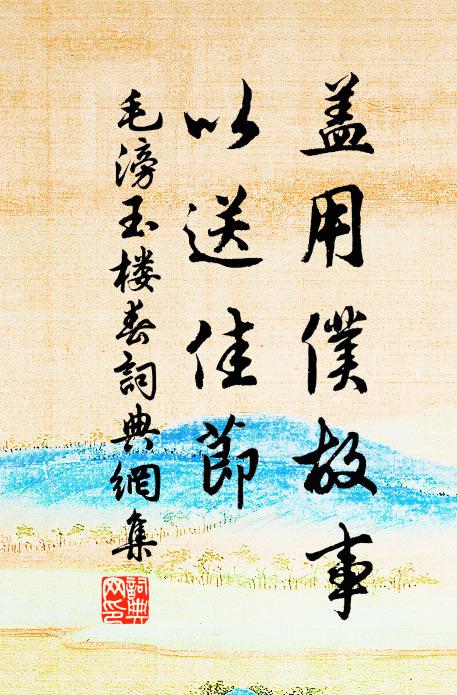 盖用僕故事
以送佳節
毛滂玉楼春詞典網集
詞典網印